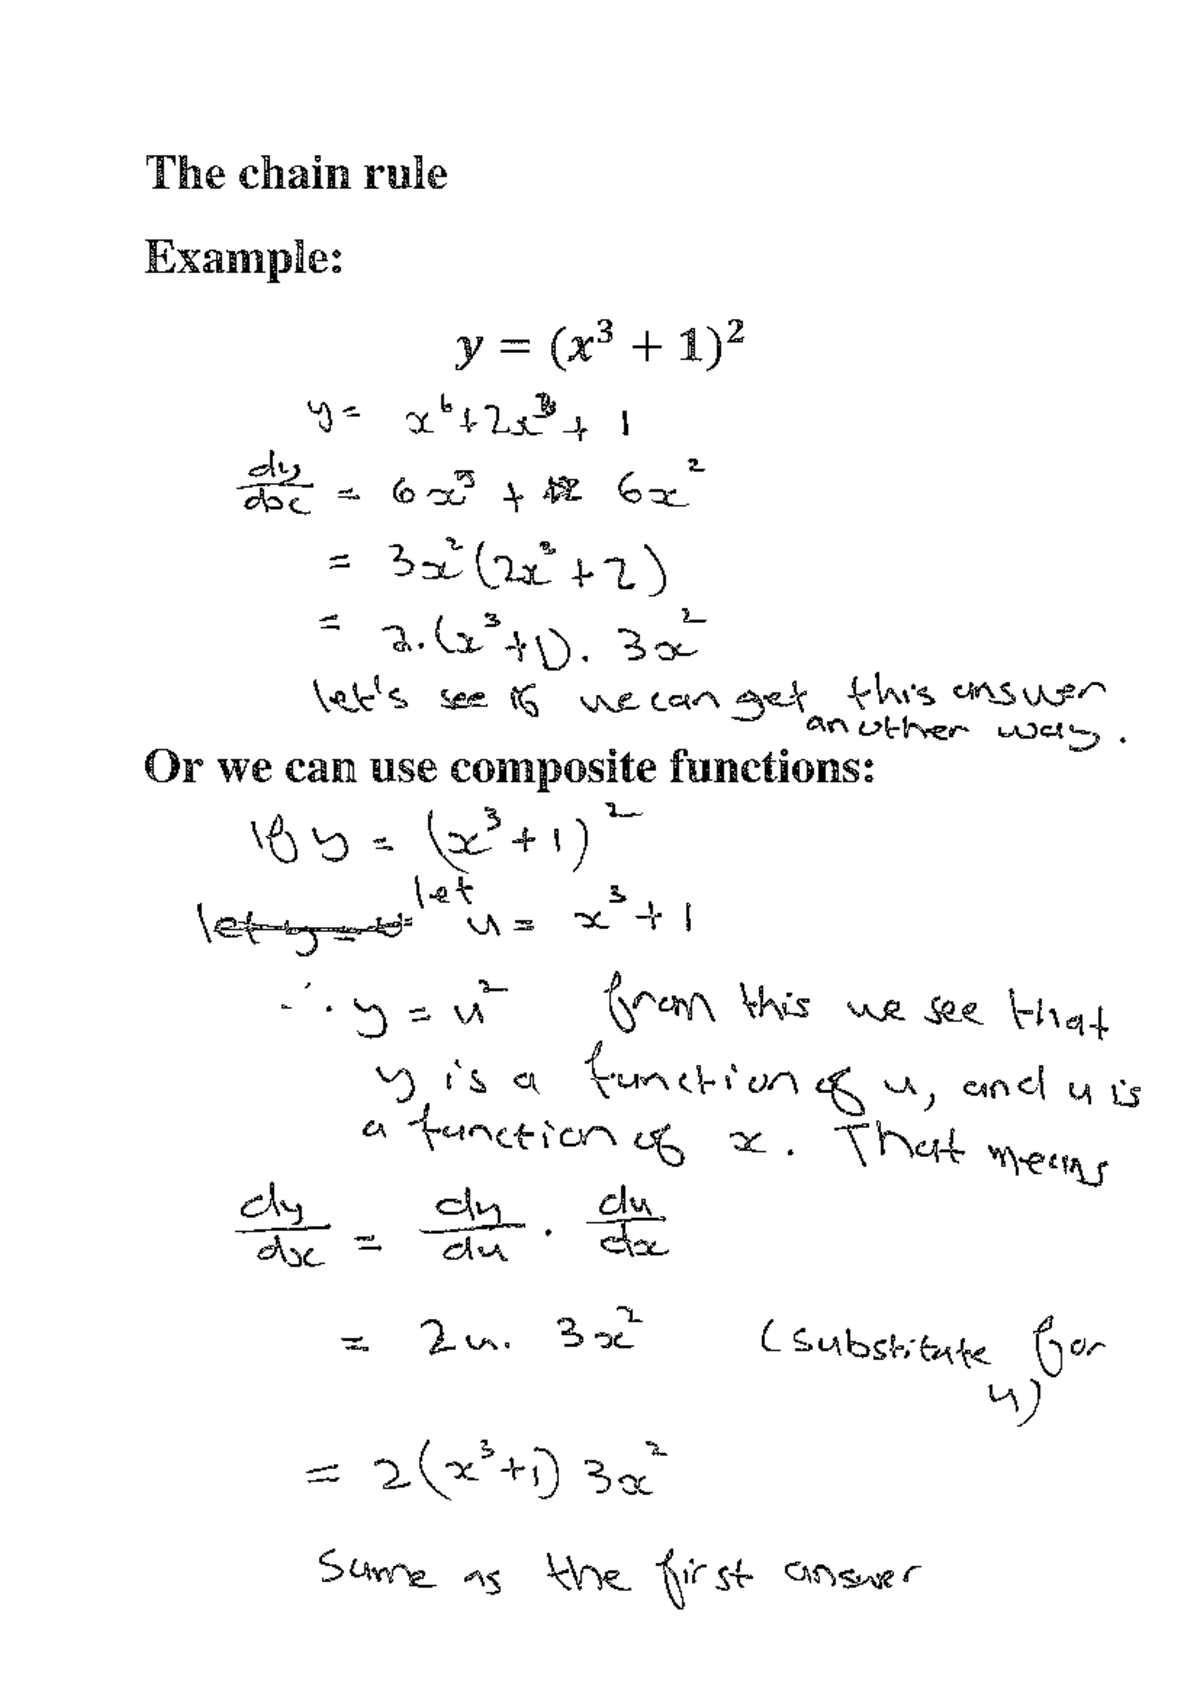 The chain rule
Example:
y = (x³ + 1)²
y = x⁶ + 2x³ + 1
dy/dx = 6x⁵ + 6x²
= 3x² (2x³ + 2)
= 2.(x³+1). 3x²
let's see if we can get this answer
another way.
Or we can use composite functions:
If y = (x³ + 1)²
let
let y = u = u = x³ + 1
∴ y = u² from this we see that
y is a function of u, and u is
a function of x. That means
dy/dx = dy/du . du/dx
= 2u. 3x² (substitute for
u)
= 2(x³+1) 3x²
Same as the first answer